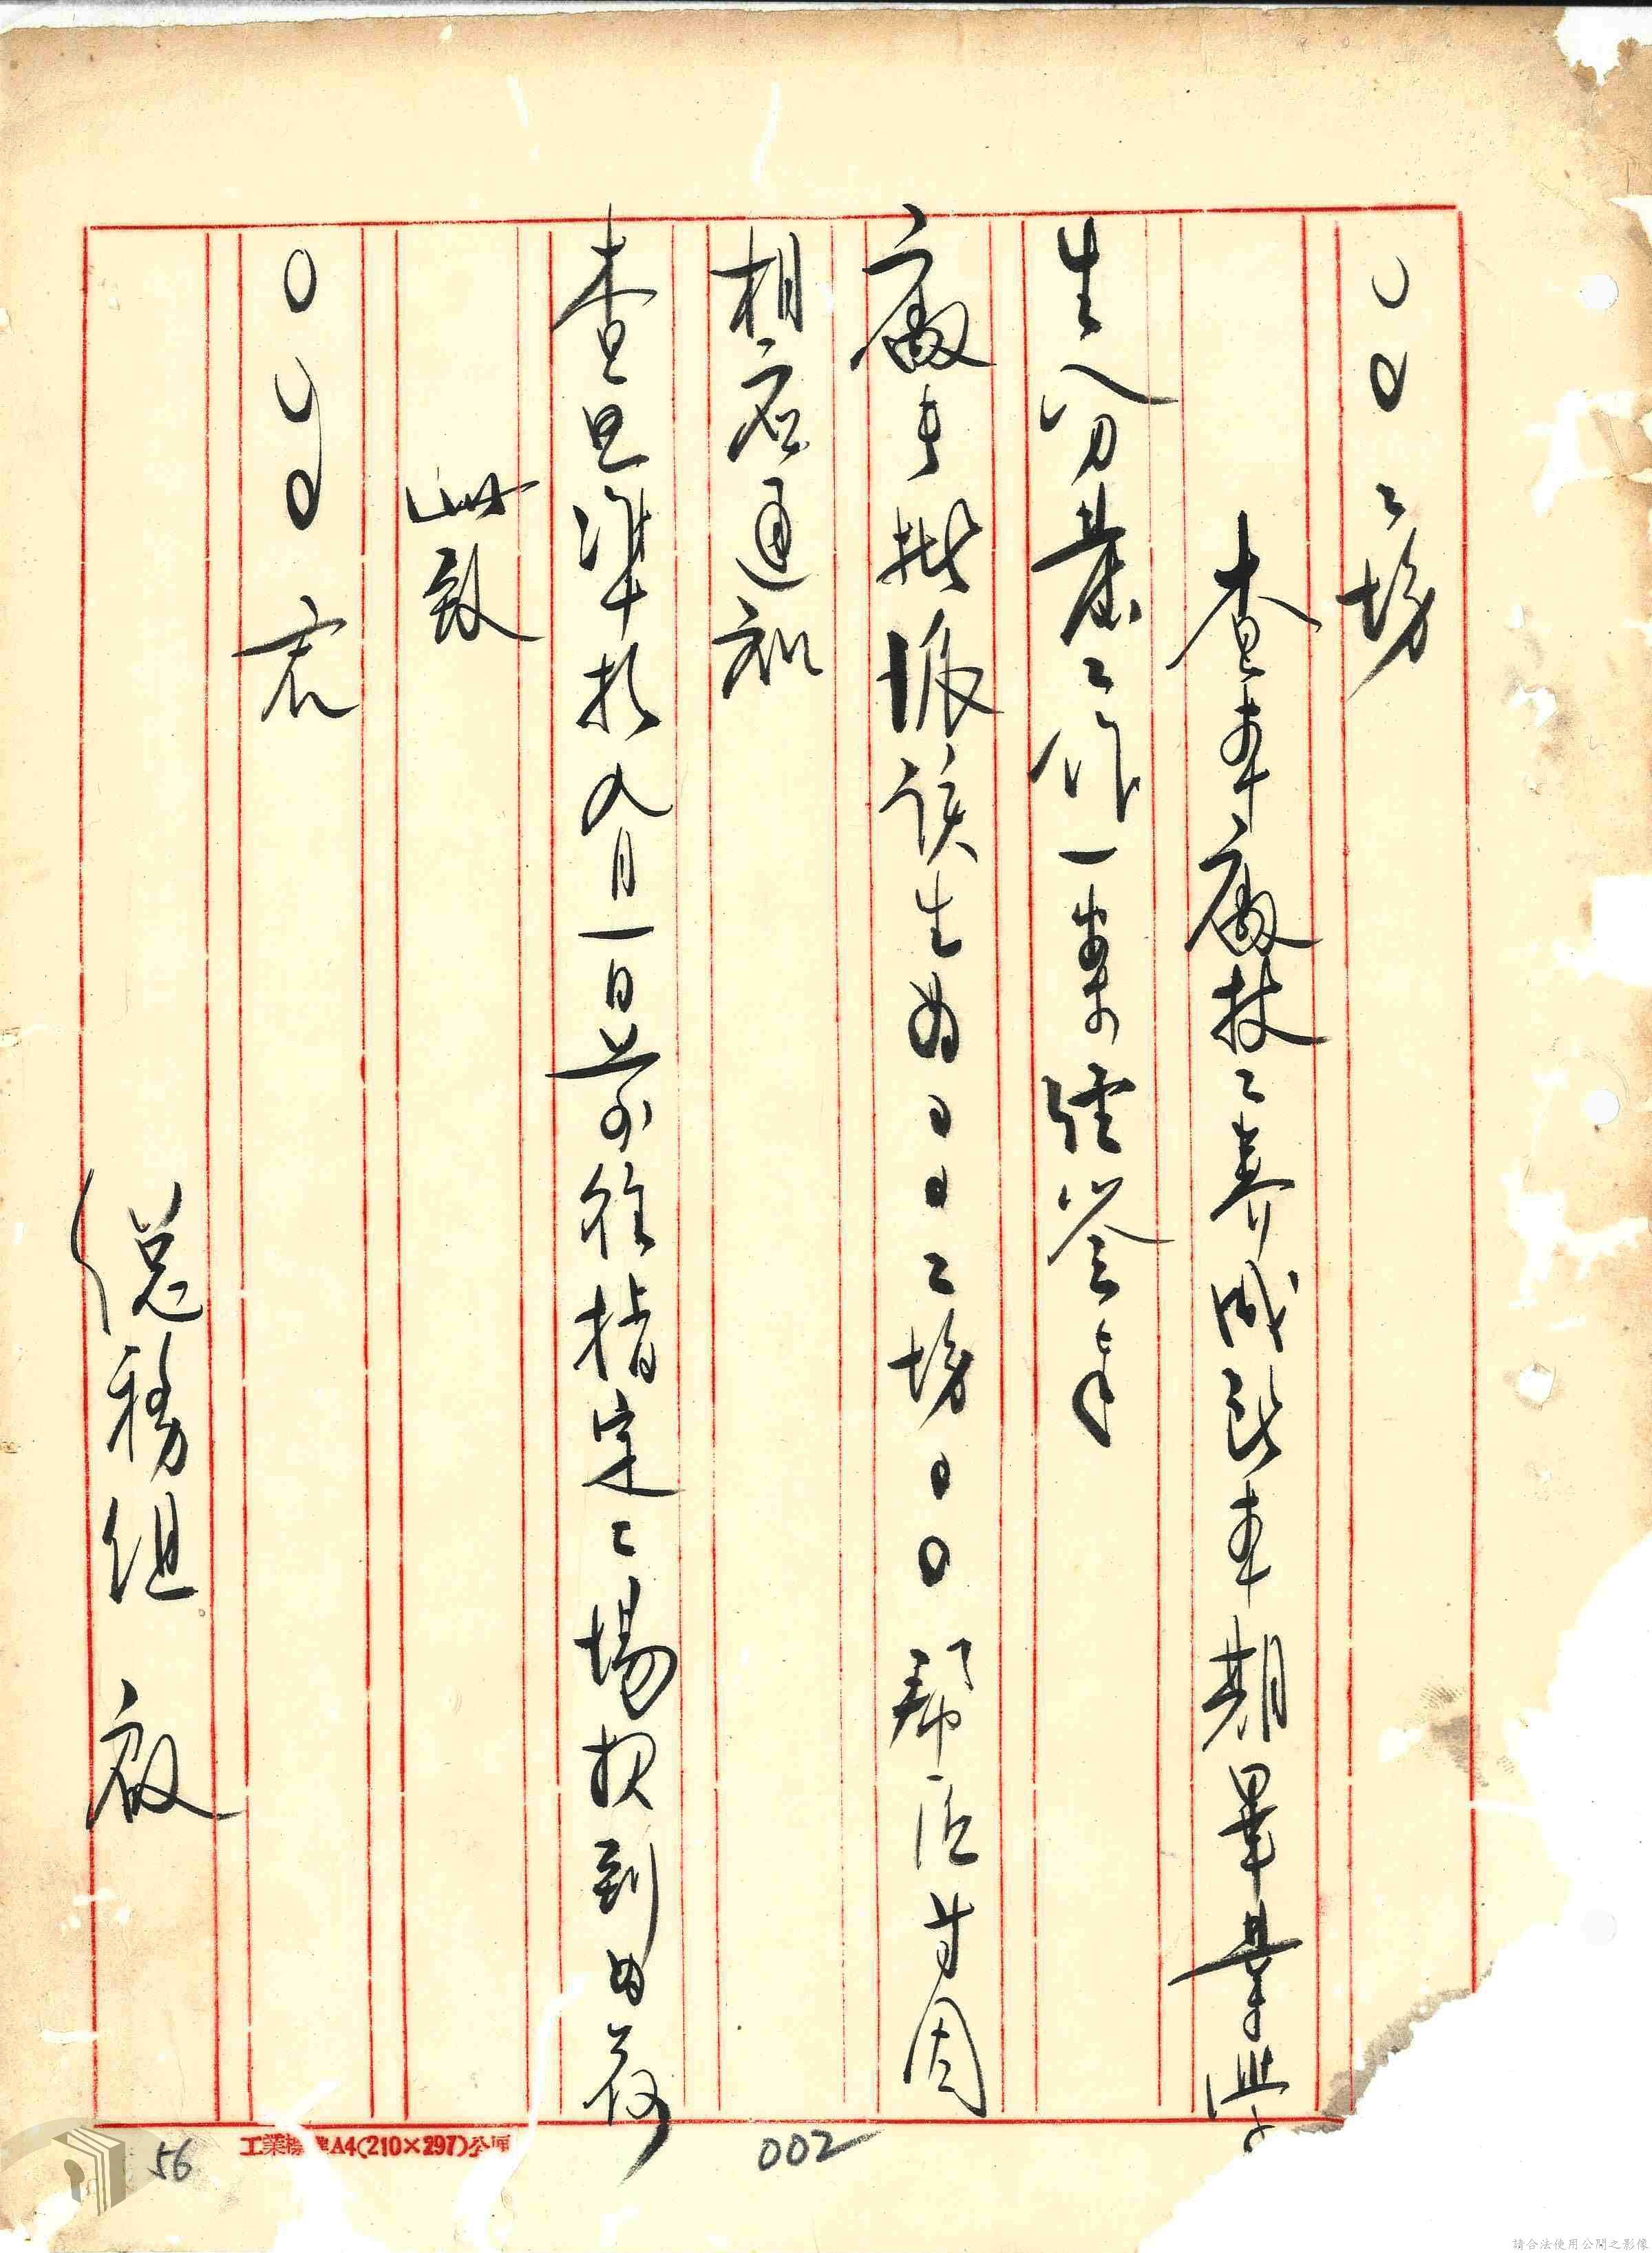 〇〇工場
查本廠技工養成班本期畢業學
生分發工作一案經簽奉
廠長批派該生為〇〇工場〇〇幫匠等因
相應通知
查照準於九月一日前往指定工場報到為荷
此致
〇〇〇君
總務組 啟
56
工業標準A4(210×297)公厘
002
請合法使用公開之影像